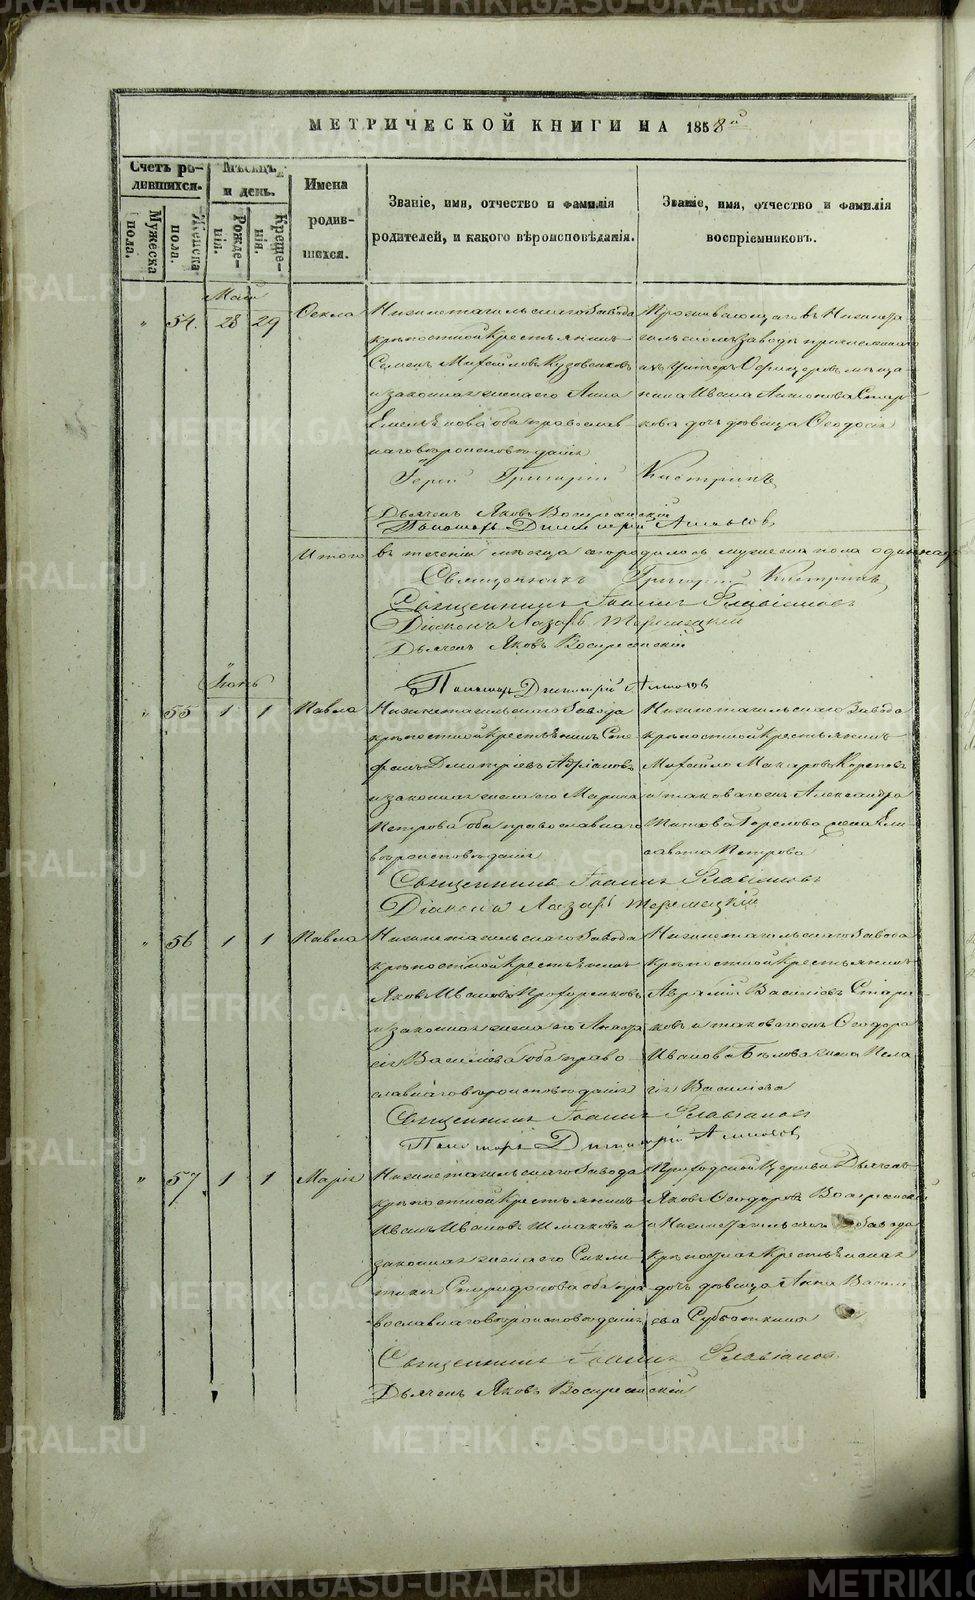 МЕТРИЧЕСКОЙ КНИГИ НА 1858й
Счетъ ро-
дившихся.
Мужеска
пола.
Женска
пола.
Мѣсяцъ
и день.
Рожде-
нія.
Креще-
нія.
Имена
родив-
шихся.
Званіе, имя, отчество и фамилія
родителей, и какого вѣроисповѣданія.
Званіе, имя, отчество и фамилія
воспріемниковъ.
Май
" 54. 28 29 Ѳекла
Нижнетагильскаго Завода
крѣпостной крестьянинъ
Семенъ Михайловъ Кузовниковъ
и законная жена его Анна
Емельянова оба православ
наго вѣроисповѣданія
Проживающаго въ Нижнета
гильскомъ заводѣ причисленнаго
изъ Унтеръ Офицеровъ мѣща
нина Ивана Антонова Стар
кова дочь дѣвица Ѳеодосія
Іерей Григорій
Дьячекъ Яковъ Воскресенскій
Пономарь Димитрій
Итого въ теченіи мѣсяца Мая родилось мужеска пола
Священникъ Григорій
Священникъ Іоаннъ Флавіановъ
Діаконъ Лазарь
Дьячекъ Яковъ Воскресенскій
Пономарь Димитрій
Іюнь
" 55 1 1 Павла
Нижнетагильскаго Завода
крѣпостной крестьянинъ Сте
фанъ Дмитріевъ Адріановъ
и законная жена его Марина
Петрова оба православнаго
вѣроисповѣданія
Нижнетагильскаго Завода
крѣпостной крестьянинъ
Михайло Макаровъ
и таковагожъ Александра
Титова Горелова жена Ели
савета Петрова
Священникъ Іоаннъ Флавіановъ
Діаконъ Лазарь
" 56 1 1 Павла
Нижнетагильскаго Завода
крѣпостной крестьянинъ
Яковъ Ивановъ
и законная жена его Анаста
сія Васильева оба право
славнаго вѣроисповѣданія
Нижнетагильскаго Завода
крѣпостной крестьянинъ
Аврамій Васильевъ Стари
ковъ и таковагожъ Ѳеодора
Иванова Бѣлова жена Пела
гія Васильева
Священникъ Іоаннъ Флавіановъ
Пономарь Димитрій
" 57 1 1 Марія
Нижнетагильскаго Завода
крѣпостной крестьянинъ
Иванъ Ивановъ Шмаковъ и
законная жена его Синкли
тикія Спиридонова оба пра
вославнаго вѣроисповѣданія
Приходской Церкви Дьячекъ
Яковъ Ѳеодоровъ Воскресенскій
и Нижнетагильскаго завода
крѣпостная крестьянская
дочь дѣвица Анна Василь
ева Субботина
Священникъ Іоаннъ Флавіановъ
Дьячекъ Яковъ Воскресенскій
METRIKI.GASO-URAL.RU